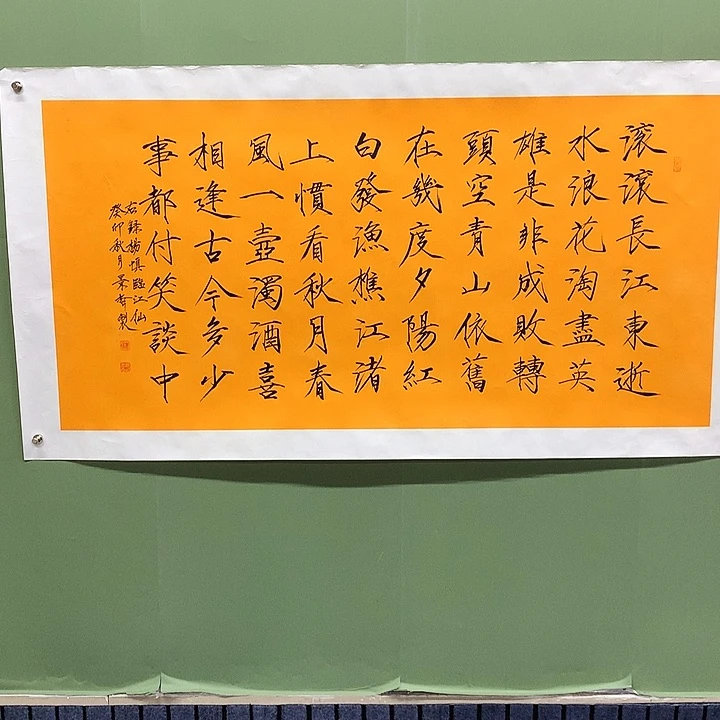 滚滚長江東逝
水浪花淘盡英
雄是非成敗轉
頭空青山依舊
在幾度夕陽紅
白發漁樵江渚
上慣看秋月春
風一壺濁酒喜
相逢古今多少
事都付笑談中
右録楊慎臨江仙
癸卯秋月景春製